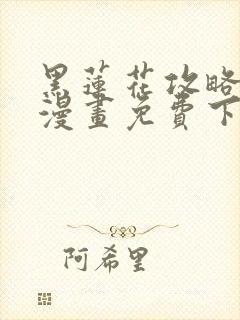 黑蓮花攻略
漫畫免費下
阿希里